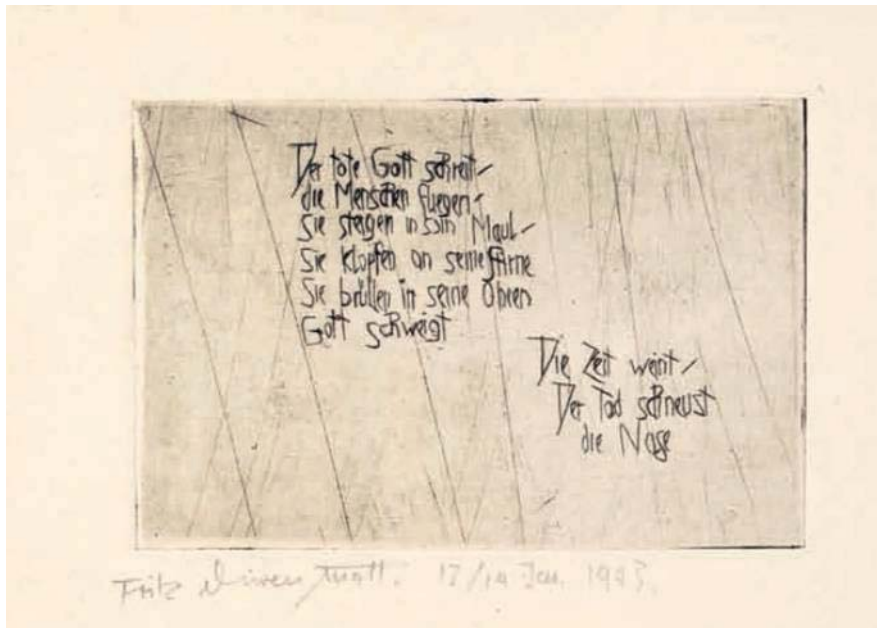 Der tote Gott schreit/
die Menschen fliegen/
Sie steigen in sein Maul/
Sie klopfen an seine Stirne
Sie brüllen in seine Ohren
Gott schweigt
Die Zeit weint/
Der Tod schneuzt
die Nase
Fritz Dürrenmatt. Jan. 1943.